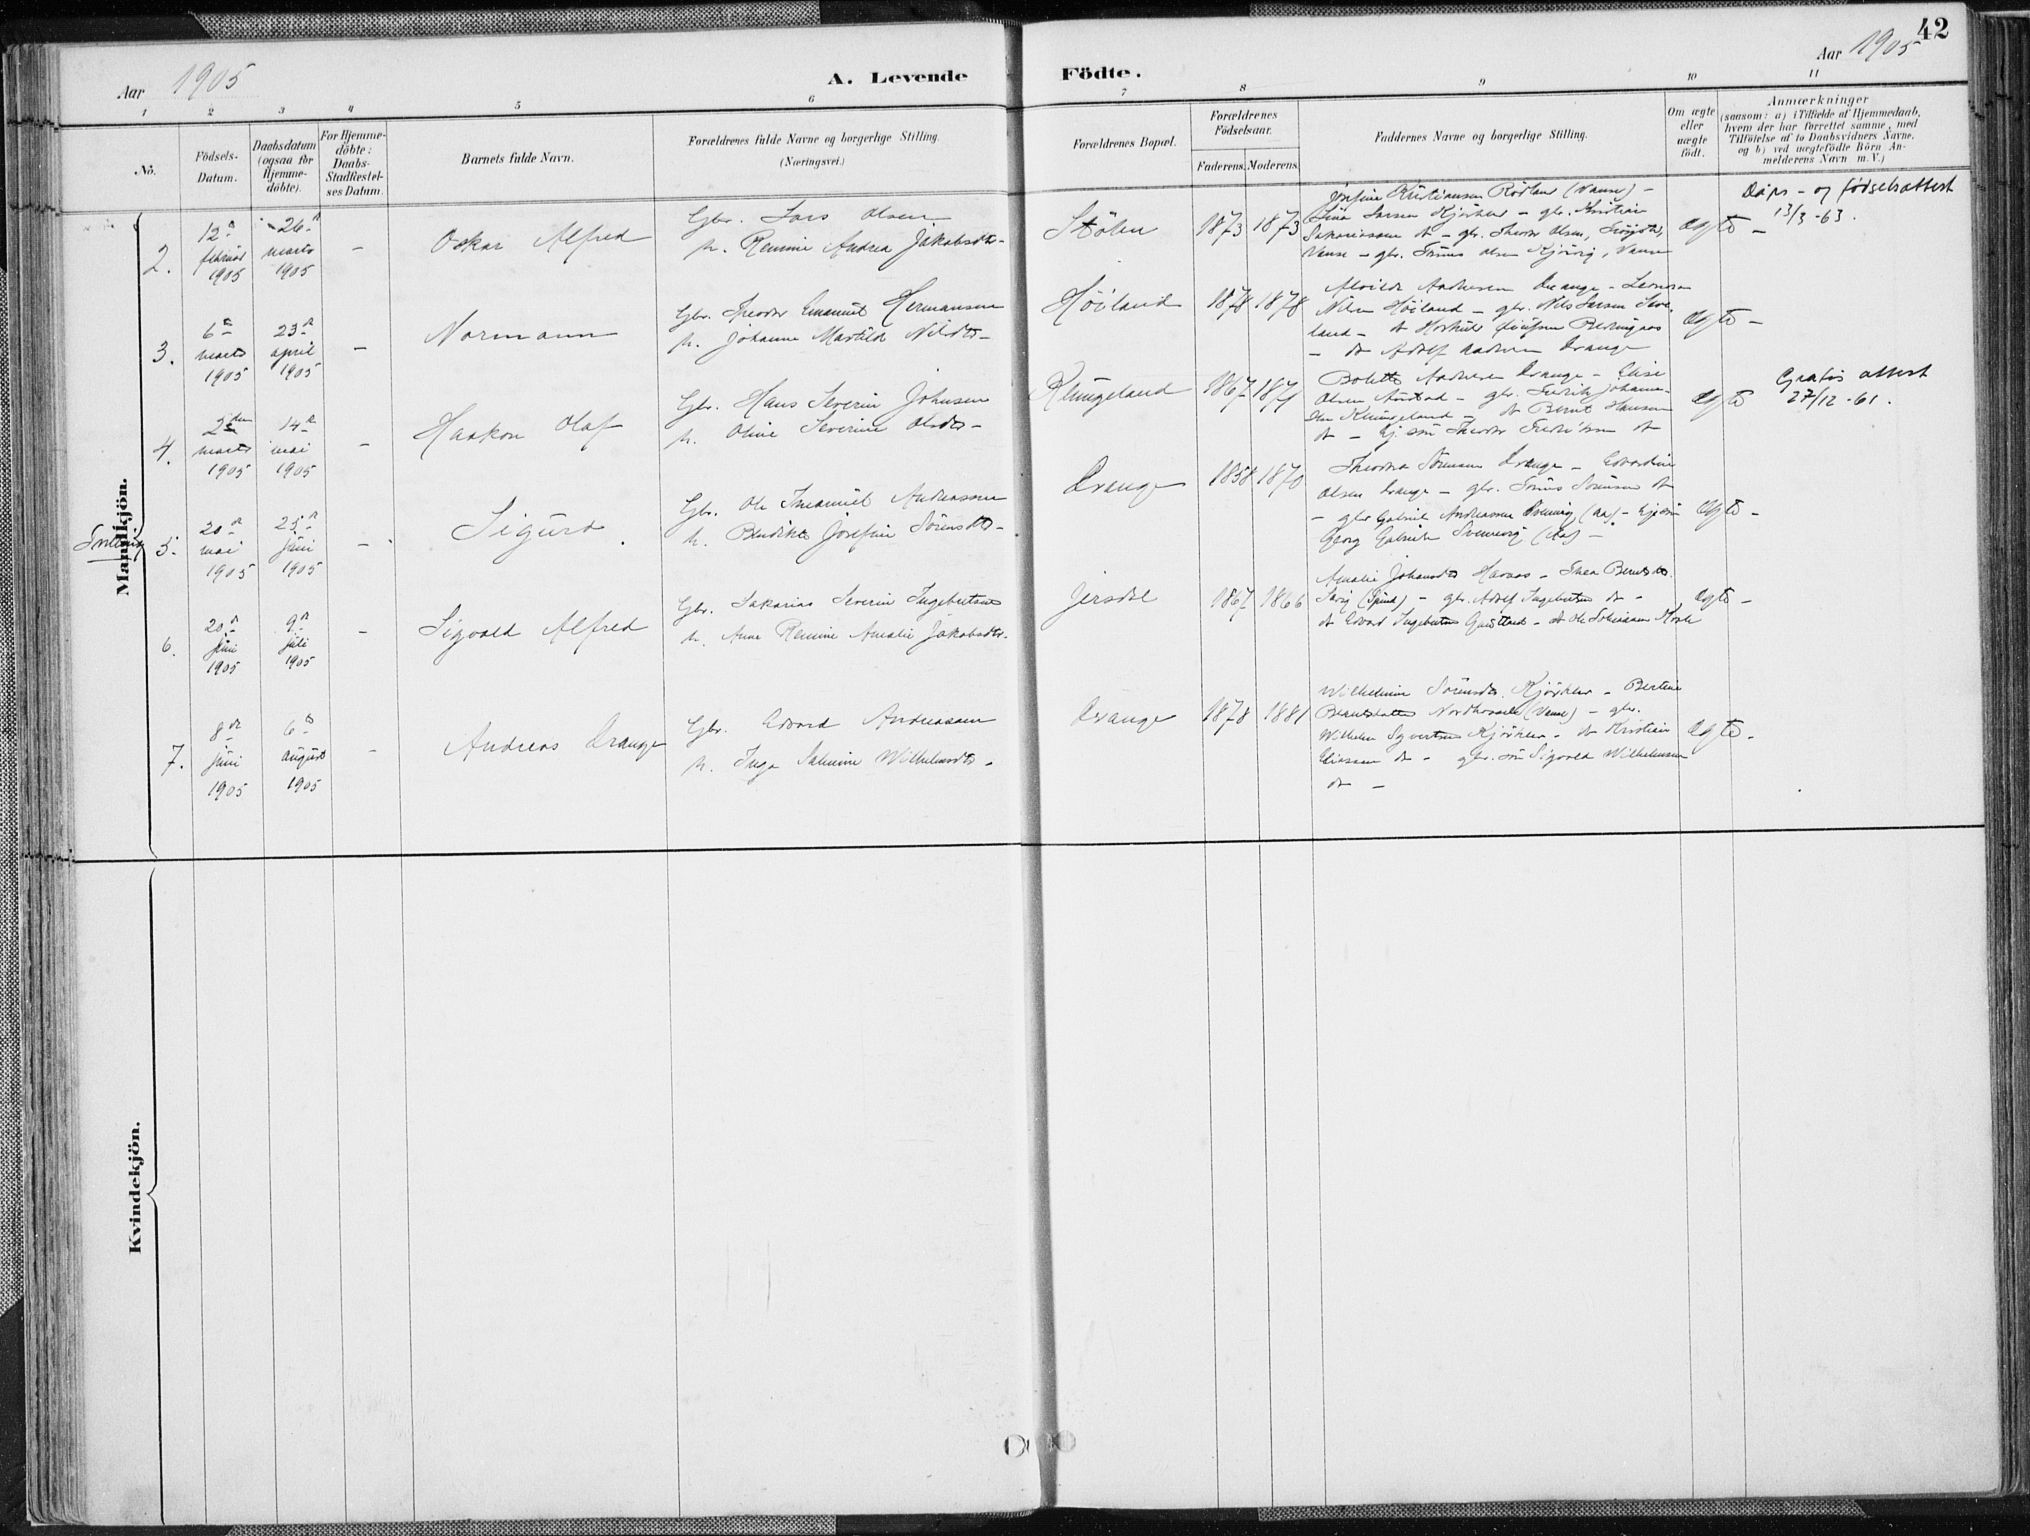 42
Aar 1905
A. Levende
Födte.
Aar 1905
1 2 3 4 5 6 7 8 9 10 11
No.
Födsels-
Datum.
Daabsdatum
(ogsaa for
Hjemme-
döbte).
For Hjemme-
döbte:
Daabs-
Stadfæstel-
ses Datum.
Barnets fulde Navn.
Forældrenes fulde Navne og borgerlige Stilling.
(Næringsvei.)
Forældrenes Bopæl.
Forældrenes
Födselsaar.
Faderens. Moderens.
Faddernes Navne og borgerlige Stilling.
Om ægte
eller
uægte
födt.
Anmærkninger
(saasom: a) i Tilfælde af Hjemmedaab,
hvem der har forrettet samme, med
Tilföielse af to Daabsvidners Navne,
og b) ved uægtefödte Börn An-
melderens Navn m. V.)
Mandkjön.
2.
12te
februar
1905
26de
marts
1905
-
Oskar Alfred
Gbr. Lars Olsen
h. Remine Andrea Jakobsdtr-
Stölen
1873 1873
Josefine Kristiansen Rödland (Vanse) -
Lina Larsen Kjörkleiv - gbr. Kristian
Sakariassen dt - gbr. Theodor Olsen,
Vanse - gbr. Olsen Kjörrig, Vanse
ægte -
Dåps - og födselsattest
13/3 -63.
3.
6te
marts
1905
23de
april
1905
-
Normann
Gbr. Theodor Emanuel Hermansen
h. Johanne Martild Nilsdtr-
Höiland
1878 1878
Alvilde Andersen Drange -
Nilsen Höiland - gbr. Nils Larsen
land - dt
- dt Adolf Andersen Drange
ægte -
4.
2den
marts
1905
14de
mai
1905
-
Haakon Olaf
Gbr. Hans Severin Johnsen
h. Oline Severine Olsdtr-
Klungeland
1867 1871
Bolette Andersen Drange - Elise
Olsen - gbr. Fredrik Johanne-
sen Klungeland - dt Bernt Hansen
dt - Theodor Fredriksen dt
ægte
Gratis attest
27/12 -61.
5.
20de
mai
1905
25de
juni
1905
-
Sigurd
Gbr. Ole Emanuel Andreassen
h. Bendikte Josefine Sörensdtr-
Drange
1858 1870
Theodora Sörensen Drange -
Olsen Drange - gbr. Sörensen dt
- gbr Gabriel Andreassen Svennevig (Aa) -
Georg Gabrielsen Svennevig (Aa) -
ægte -
6.
20de
juni
1905
9de
juli
1905
-
Sigvald Alfred
Gbr. Sakarias Severin Ingebretsen
h. Anne Remine Amalie Jakobsdtr-
Jersdal
1867 1866
Amalie Johansdtr - Thea Berntsdtr
(Spind) - gbr. Adolf Ingebretsen dt -
dt Edvard Ingebretsen - dt Ole
ægte -
7.
8de
juni
1905
6te
august
1905
-
Andreas Drange
Gbr. Edvard Andreassen
h. Inga Salmine Wilhelmsdtr-
Drange
1878 1881
Wilhelmine Sörensdtr. Kjörkleiv - Bertine
Nordhassel (Vanse) - gbr.
Wilhelm Syvertsen Kjörkleiv - dt Kristian
Eliassen dt - gbr. sön Sigvald Wilhelmsen
dt -
ægte -
Kvindekjön.